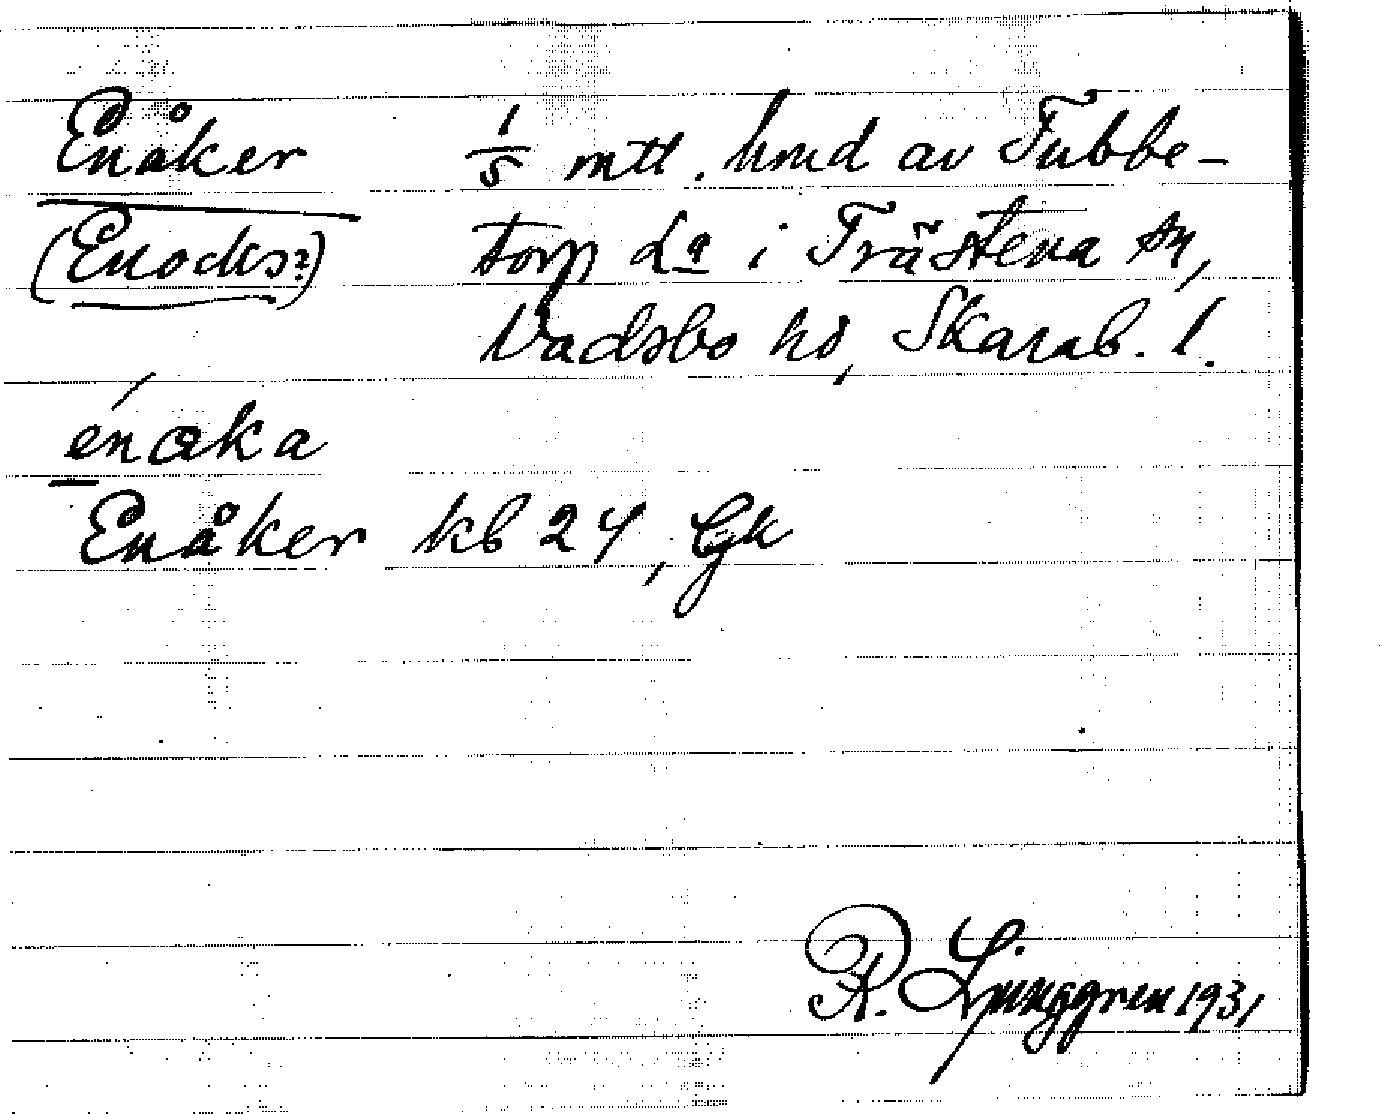 Enåker 1/5 mtl. hmd av Tubbe-
(Enocks?) torp La i Trästena sn,
Vadsbo hd, Skarab. l.
énåka
Enåker kb 24, Gk
R. Ljunggren 1931